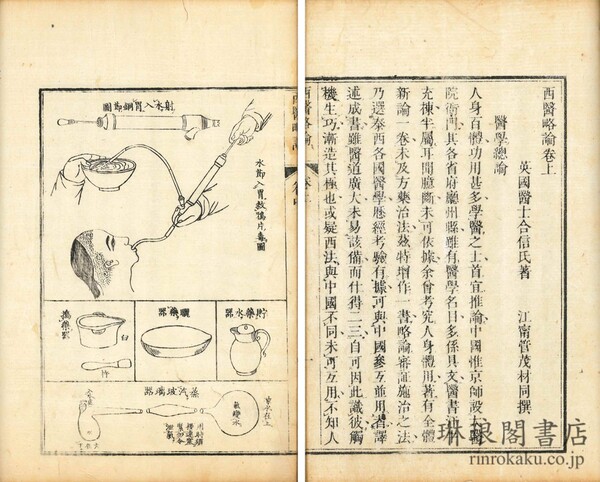 西醫略論卷上
英國醫士合信氏著 江甯管茂材同撰
醫學總論
人身百體功用甚多學醫之士首宜推論中國惟京師設太醫
院衙門其各省府廳州縣雖有醫學名目多係具文醫書汗牛
充棟半屬耳聞臆斷未可依據余曾考究人身體用著有全體
新論一卷未及方藥治法茲特增作一書略論審証施治之法
乃選泰西各國醫學歷經考驗有據可與中國參互並用者譯
述成書雖醫道廣大未易該備而什得二三自可因此識彼觸
機生巧漸造其極也或疑西法與中國不同未可互用不知人
西醫略論 卷上
射水入胃銅節圖
水節入胃救鴉片毒圖
貯藥水器
曬藥器
擣藥器
臼
杵
蒸汽玻璃器
琳琅閣書店
rinrokaku.co.jp